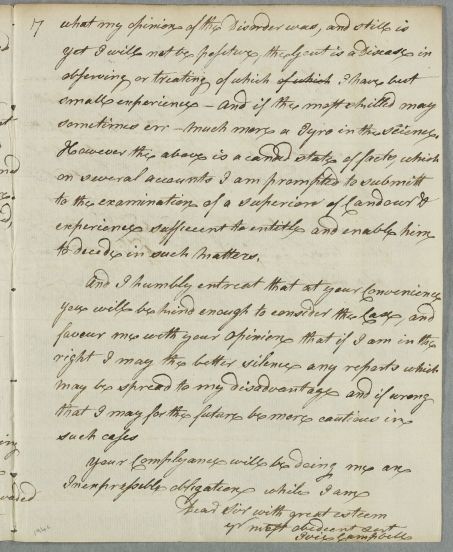 7 what my opinion of the Disorder was, and still is
yet I will not be positive, the Gout is a Disease in
observing or treating of which of which I have but
small experience - and if the most skilled may
sometimes err - much more a Tyro in the science.
However the above is a candid state of facts which
on several accounts I am prompted to submitt
to the examination of a superior of Candour &
experience sufficcent to entitle and enable him
to decide in such matters.
And I humbly entreat that at your Convenience
you will be kind enough to consider the Case, and
favour me with your Opinion that if I am in the
right I may the better silence any reports which
may be spread to my disadvantage and if wrong
that I may for the future be more cautious in
such cases
Your Complyance will be doing me an
Inexpressible obligation while I am
Dear Sir with great esteem
yr most obedient sert
Campbell